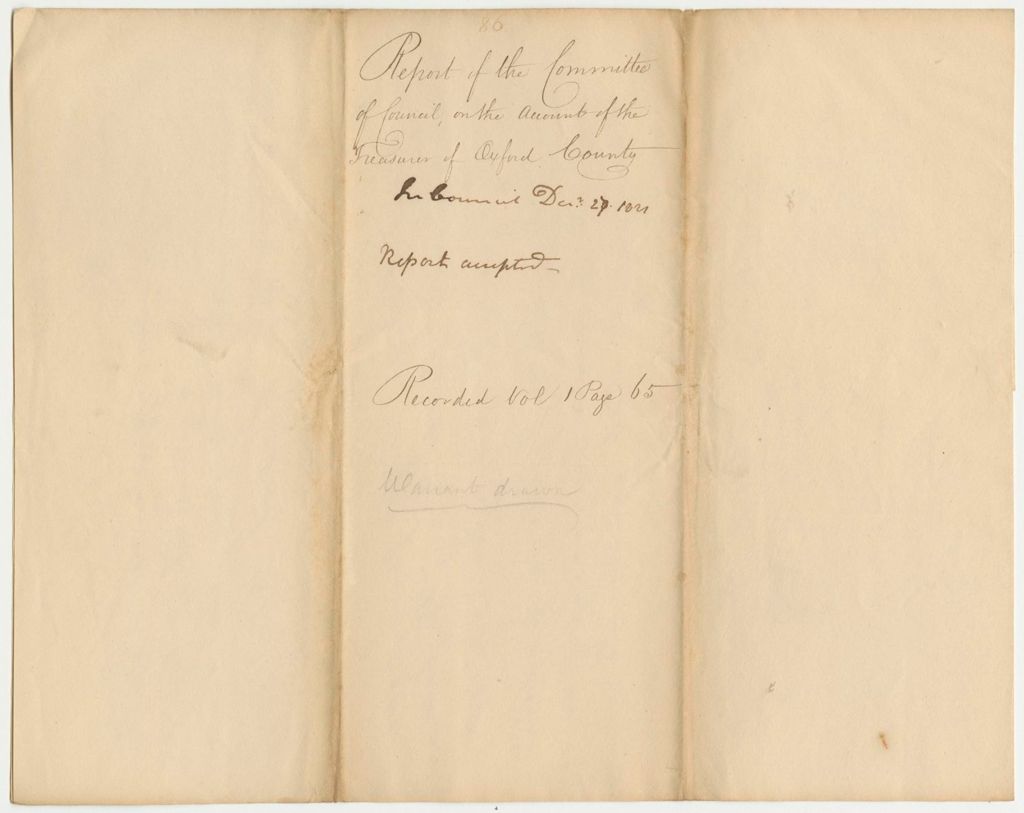 86
Report of the Committee
of Council, on the Account of the
Treasurer of Oxford County
In Council Decr. 27. 1821
Report accepted
Recorded Vol 1 Page 65
Warrant drawn